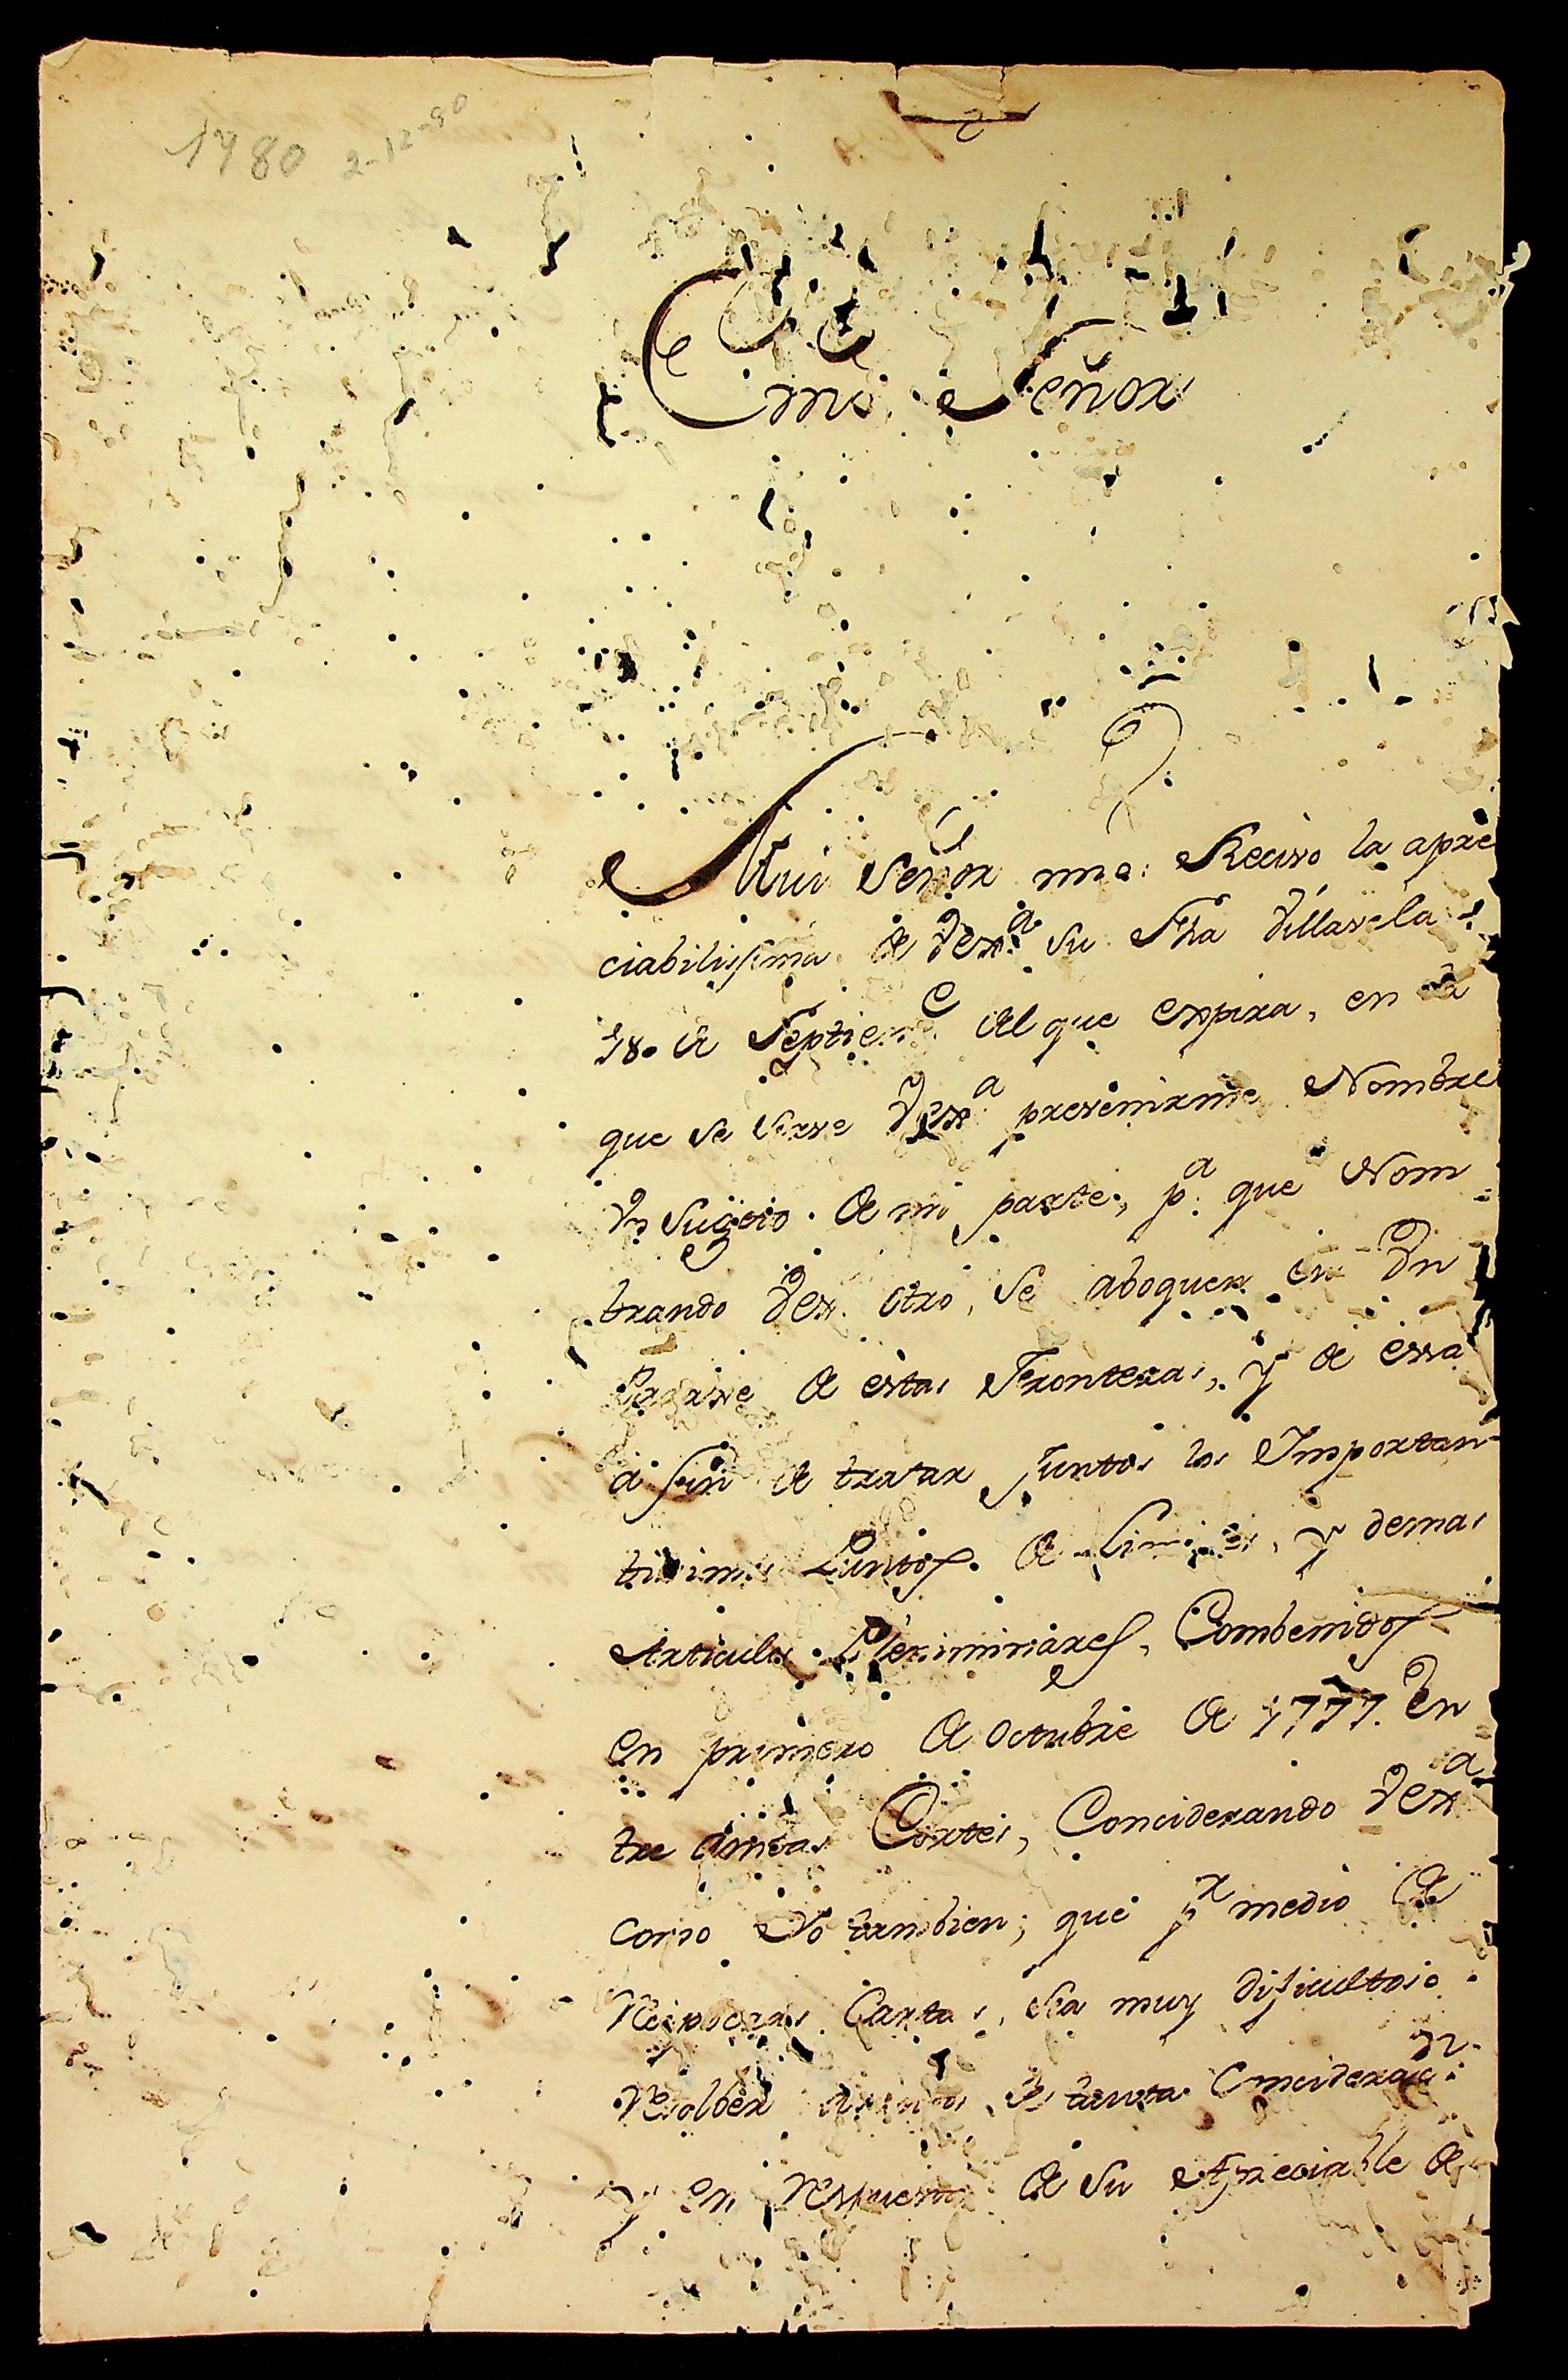 1780 2-12-90
Exmo. Señor
Mui Señor mio: Recivo la apre
ciabilissima de Vexa. su Fha Villavela
18. de Septiere. del que expira, en la
que se sirve Vexa. prevenirme Nombre
Un Sugeto de mi parte, pa. que Nom
brando Vex. otro, se aboquen en Un
Parage de estas Fronteras, y de essa
a fin de tratar Juntos los Importan
tisimos Puntos de Limites, y demas
Articulos Preliminares, Combenidos
en primero de Octubre de 1777. En
tre ambas Cortes, Conciderando Vexa
como Yo tambien; que pr. medio de
Reciprocas Cartas, sea muy dificultoso
Resolber Asuntos de tanta Conciderazn.
y en respuesta de su Apreciable de